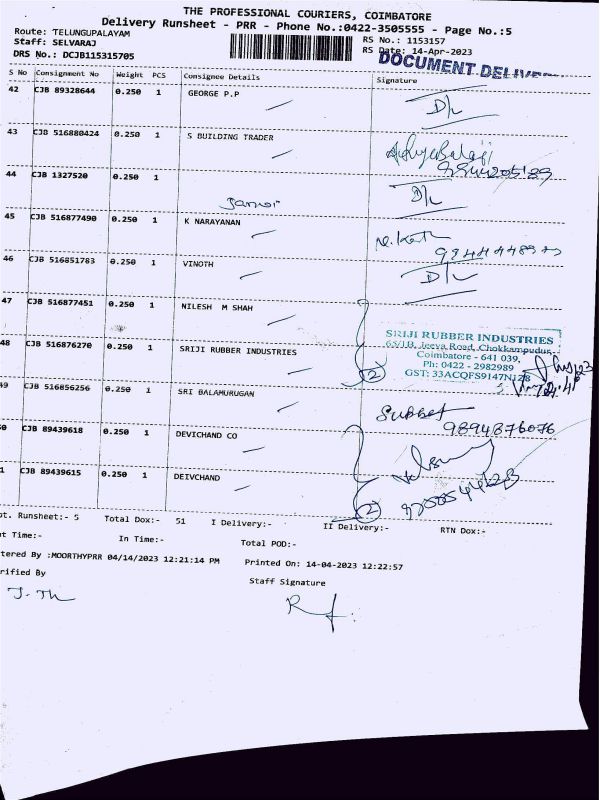 THE PROFESSIONAL COURIERS, COIMBATORE
Delivery Runsheet - PRR - Phone No.:0422-3505555 - Page No.:5
Route: TELUNGUPALAYAM
RS No.: 1153157
Staff: SELVARAJ
RS Date: 14-Apr-2023
DRS No.: DCJB115315705
DOCUMENT DELIVE
S No Consignment No Weight PCS Consignee Details Signature
42 CJB 89328644 0.250 1 GEORGE P.P D/L
43 CJB 516880424 0.250 1 S BUILDING TRADER
44 CJB 1327520 0.250 1 D/L
45 CJB 516877490 0.250 1 K NARAYANAN
46 CJB 516851783 0.250 1 VINOTH D/L
47 CJB 516877451 0.250 1 NILESH M SHAH
48 CJB 516876270 0.250 1 SRIJI RUBBER INDUSTRIES 2
SRIJI RUBBER INDUSTRIES
65/1B, Jeeva Road, Chokkampudur,
Coimbatore - 641 039.
Ph: 0422 - 2982989
GST: 33ACQFS9147N1Z8
49 CJB 516856256 0.250 1 SRI BALAMURUGAN
9894876076
0 CJB 89439618 0.250 1 DEVICHAND CO
1 CJB 89439615 0.250 1 DEIVCHAND 2
ot. Runsheet:- 5 Total Dox:- 51 I Delivery:- II Delivery:- RTN Dox:-
ut Time:- In Time:- Total POD:-
tered By :MOORTHYPRR 04/14/2023 12:21:14 PM Printed On: 14-04-2023 12:22:57
rified By Staff Signature